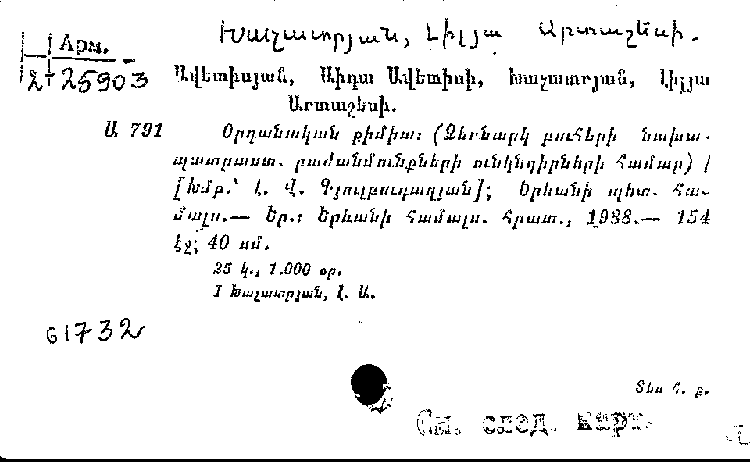 Խաչատրյան, Լիլյա Արտաշեսի.
Арм.
2-25903
Ավետիսյան, Աիդա Ավետիսի, Խաչատրյան, Լիլյա
Արտաշեսի.
Ա 791
Օրգանական քիմիա: (Ձեռնարկ բուհերի նախա-
պատրաստ. բաժանմունքների ունկնդիրների համար) /
[Խմբ.՝ Լ. Վ. Գյուլբուդաղյան]; Երևանի պետ. հա-
մալս.— Եր.: Երևանի համալս. հրատ., 1988.— 154
էջ; 40 սմ.
25 կ., 1.000 օր.
I Խաչատրյան, Լ. Ա.
61732
Տես հ. ք.
См. след. карт.